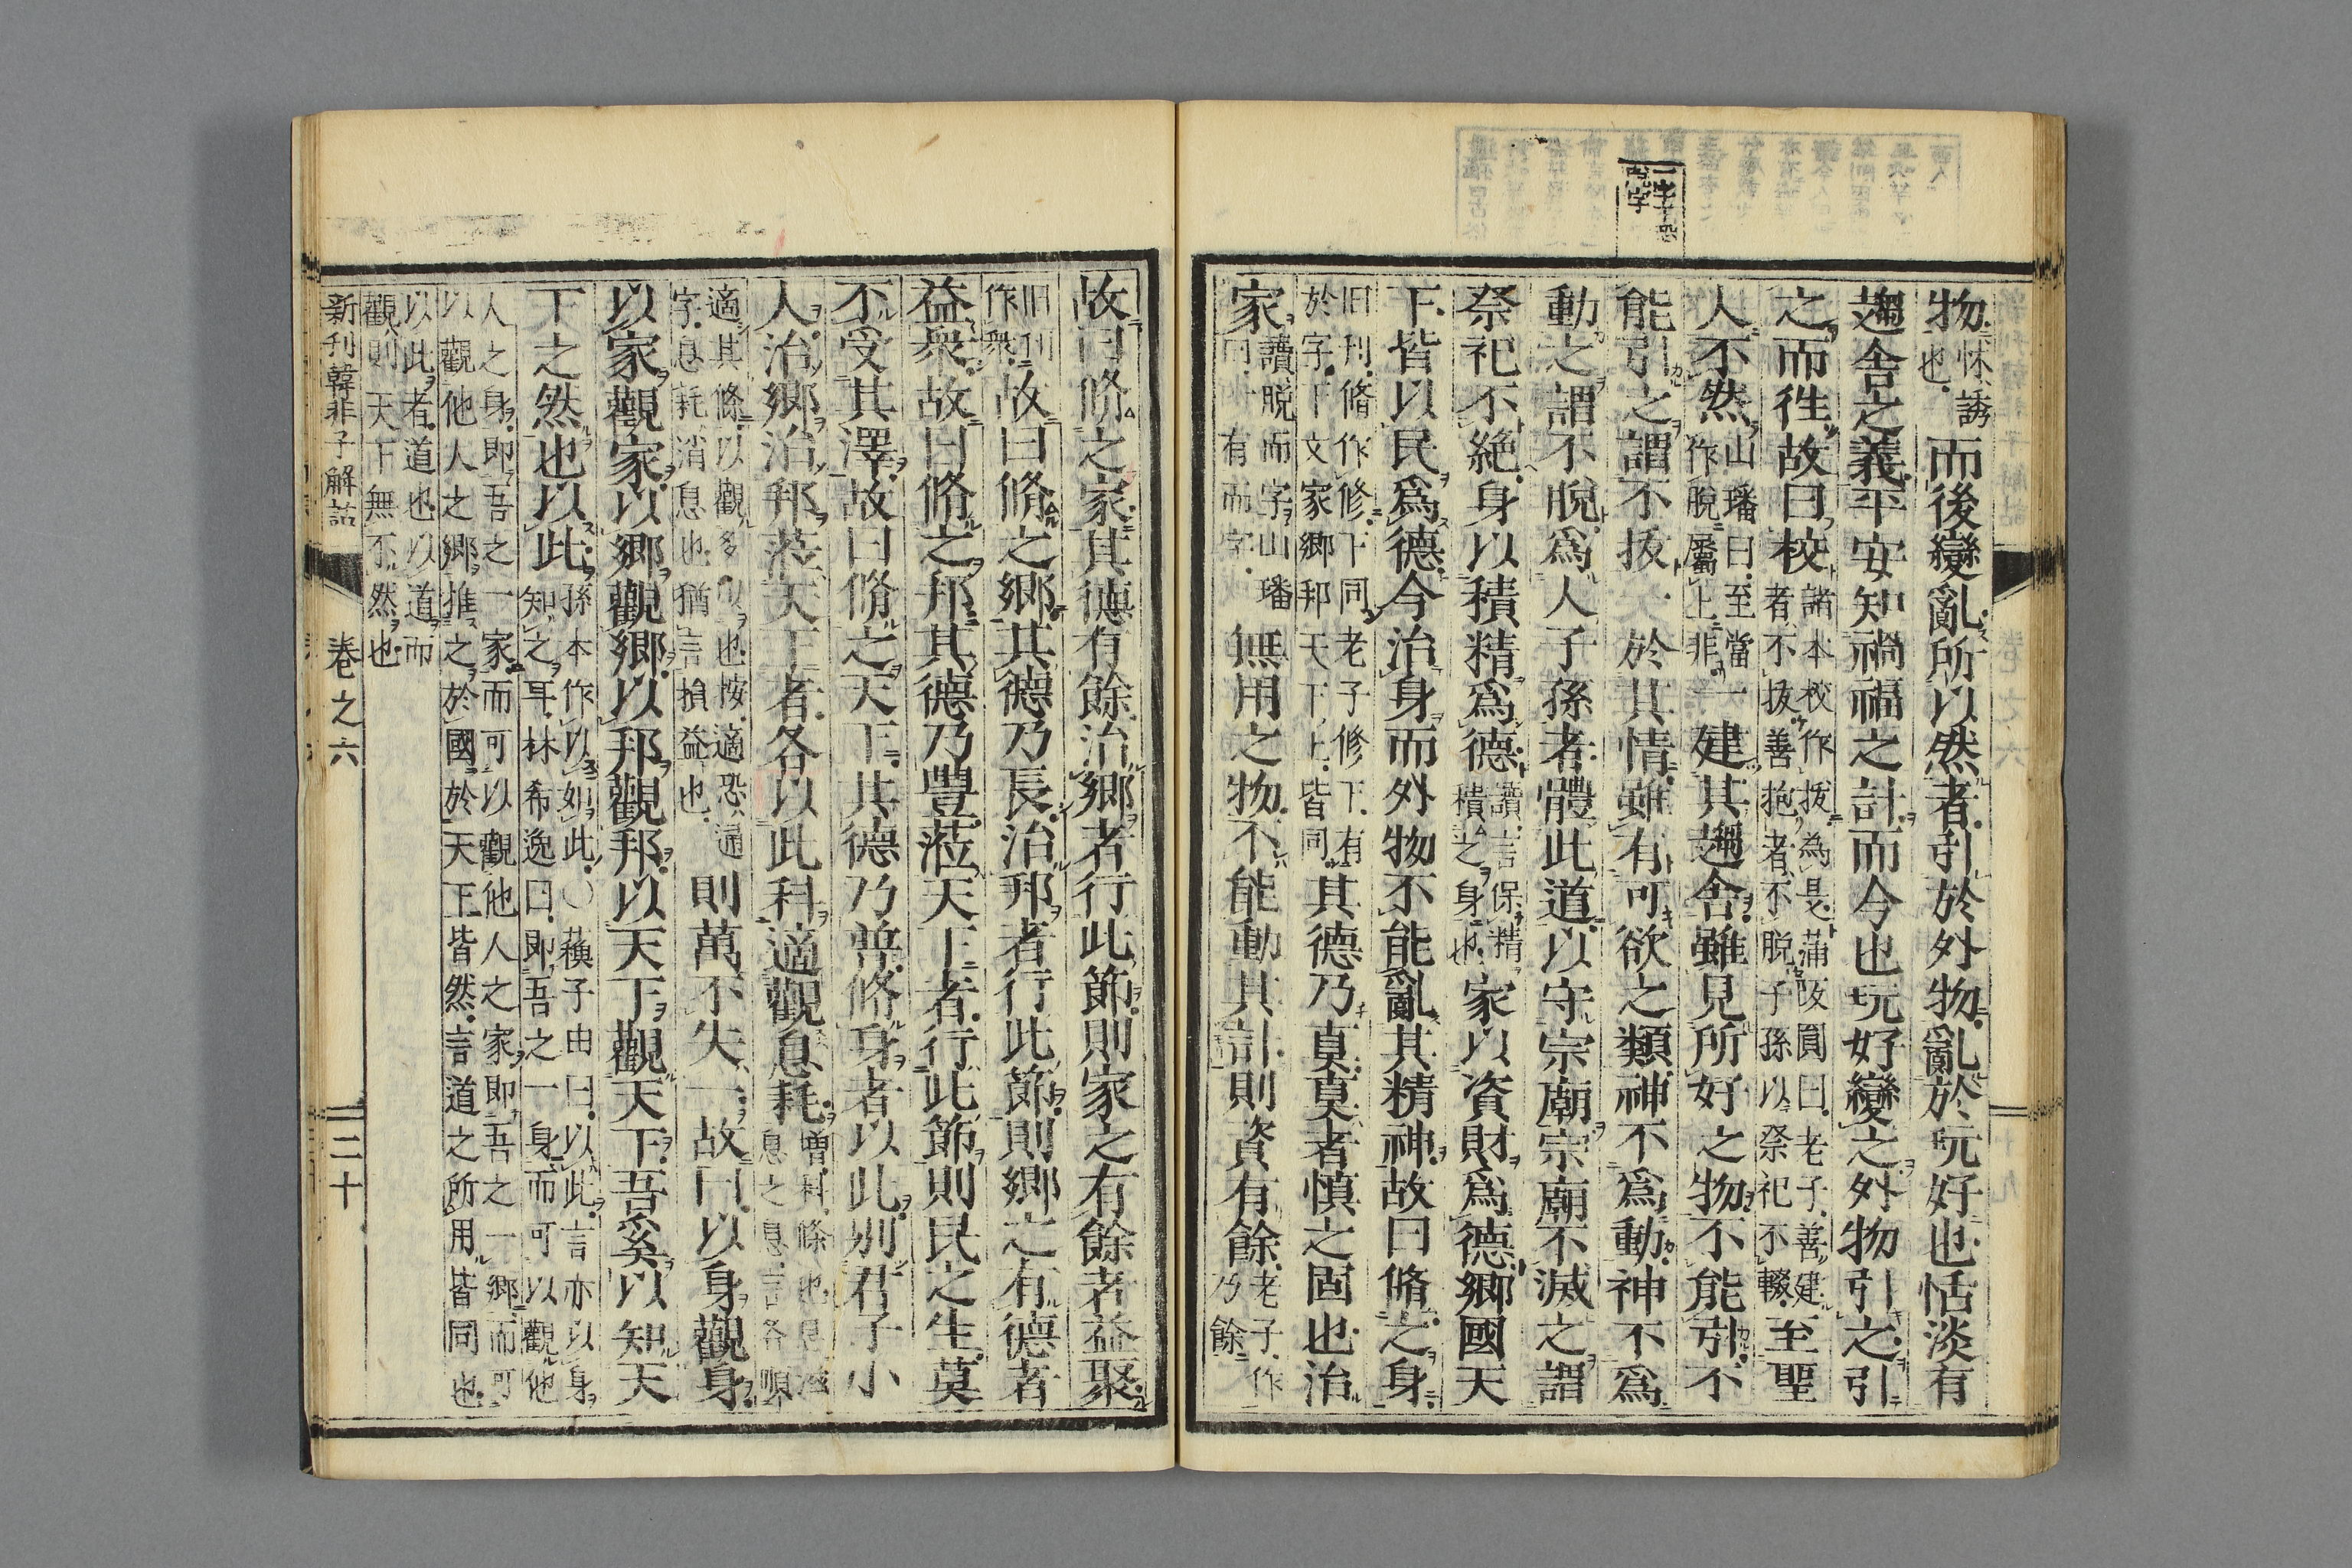 一字恐
衍字
物怵誘
也而後變亂所以然者引於外物亂於玩好也恬淡有
趨舍之義平安知禍福之計而今也玩好變之外物引之引
之而徃故曰校諸本校作拔為是蒲坂圓曰老子善建
者不拔善抱者不脫子孫以祭祀不輟至聖
人不然山璠曰至當一
作脫屬上非一建其趨舍雖見所好之物不能引不
能引之謂不拔一於其情雖有可欲之類神不爲動神不爲
動之謂不脫爲人子孫者體此道以守宗廟宗廟不滅之謂
祭祀不絕身以積精爲德讀言保精
積之身也家以資財爲德鄉國天
下皆以民爲德今治身而外物不能亂其精神故曰脩之身
旧刊脩作修下同老子修下有
於字下文家鄉邦天下上皆同其德乃眞眞者愼之固也治
家讀脫而字山璠
曰一有而字無用之物不能動其計則資有餘老子作
乃餘
故曰脩之家其德有餘治鄉者行此節則家之有餘者益聚
旧刊
作衆故曰脩之鄉其德乃長治邦者行此節則鄉之有德者
益衆故曰脩之邦其德乃豐莅天下者行此節則民之生莫
不受其澤故曰脩之天下其德乃普脩身者以此別君子小
人治鄉治邦莅天下者各以此科適觀息耗增科條也息滋
息之息言各順
適其條以觀多也按適恐逼
字息耗消息也猶言損益也則萬不失一故曰以身觀身
以家觀家以鄉觀鄉以邦觀邦以天下觀天下吾奚以知天
下之然也以此孫本作以如此〇蘓子由曰以此言亦以身
知之耳林希逸曰即吾之一身而可以觀他
人之身即吾之一家而可以觀他人之家即吾之一鄉而可
以觀他人之鄉推之於國於天下皆然言道之所用皆同也
以此者道也以道而
觀則天下無不然也
新刊韓非子解詁 卷之六 二十